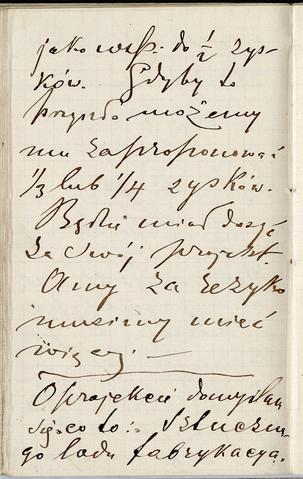 jako wsp. do ½ zys-
ków. Gdyby to
możemy
mu zaproponować
1/3 lub 1/4 zysków.
Będzie miał dosyć
za swój projekt.
A my za ryzyko
musimy mieć
więcej. —
O projekcie domyślam
się co to: Sztuczne-
go lodu fabrykacya.